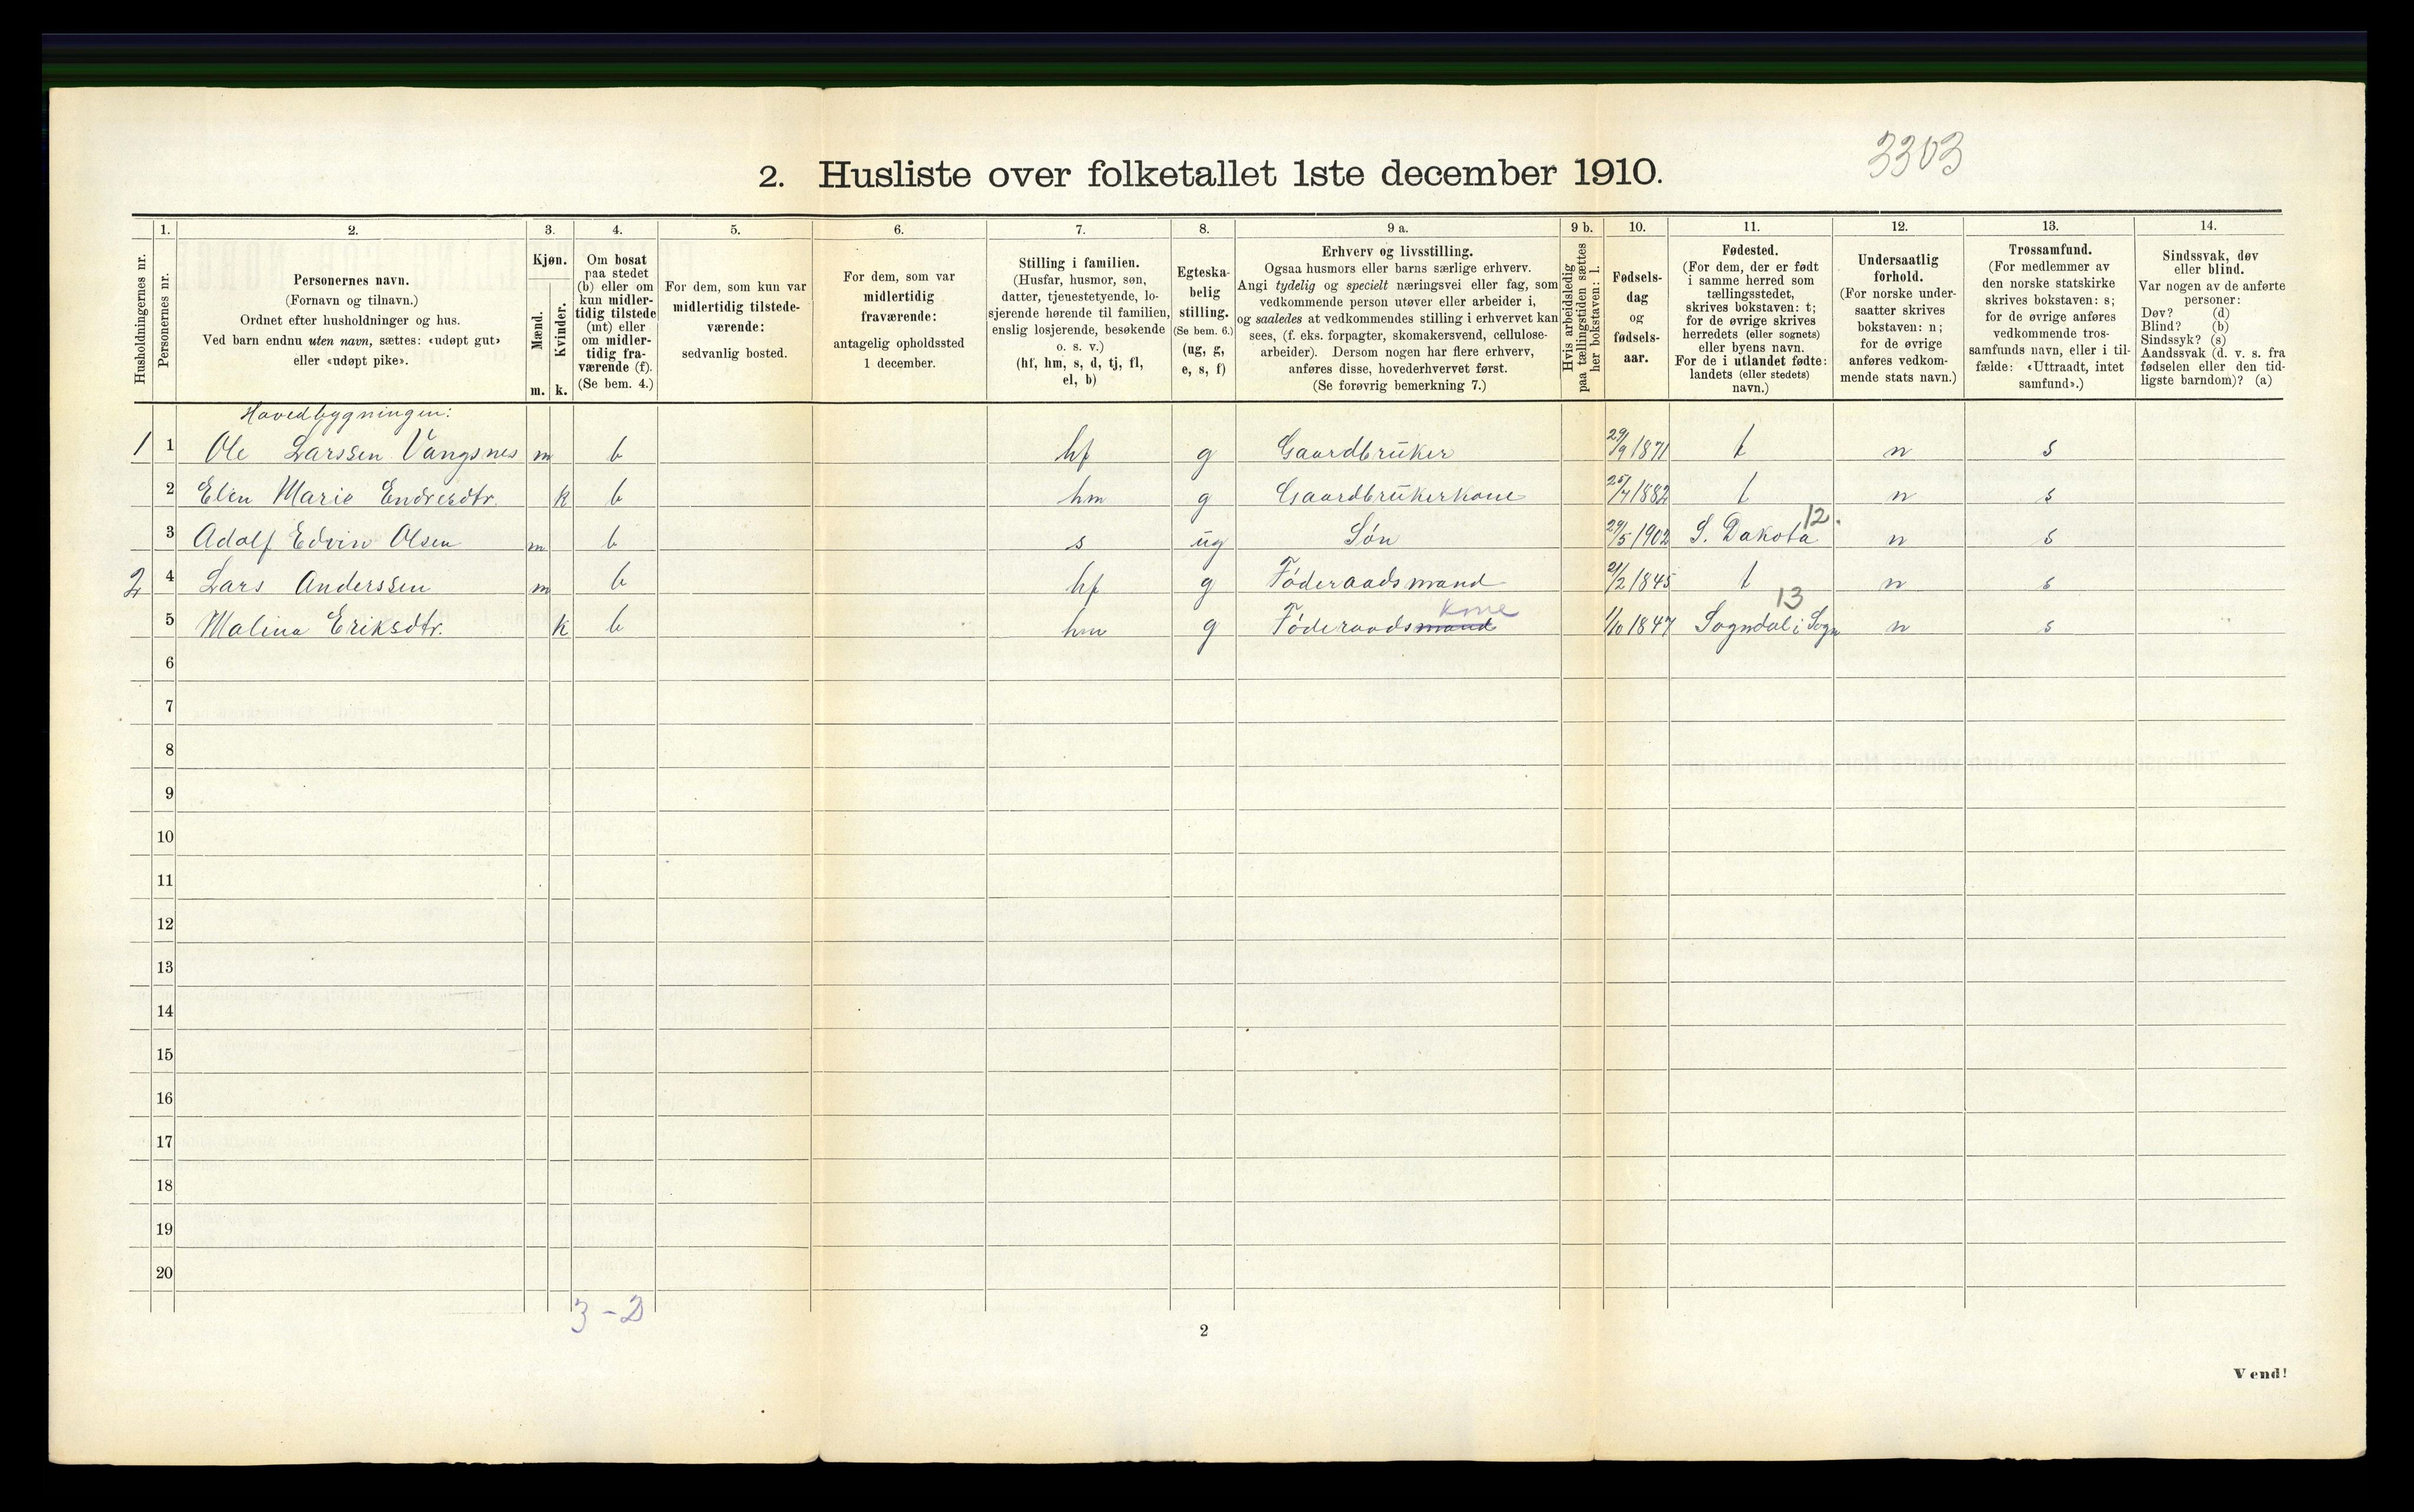 3303
2. Husliste over folketallet 1ste december 1910.
Husholdningernes nr.
1.
Personernes nr.
2.
Personernes navn.
(Fornavn og tilnavn.)
Ordnet efter husholdninger og hus.
Ved barn endnu uten navn, sættes: «udøpt gut»
eller «udøpt pike».
3.
Kjøn.
Mænd.
m.
Kvinder.
k.
4.
Om bosat
paa stedet
(b) eller om
kun midler-
tidig tilstede
(mt) eller
om midler-
tidig fra-
værende (f).
(Se bem. 4.)
5.
For dem, som kun var
midlertidig tilstede-
værende:
sedvanlig bosted.
6.
For dem, som var
midlertidig
fraværende:
antagelig opholdssted
1 december.
7.
Stilling i familien.
(Husfar, husmor, søn,
datter, tjenestetyende, lo-
sjerende hørende til familien,
enslig losjerende, besøkende
o. s. v.)
(hf, hm, s, d, tj, fl,
el, b)
8.
Egteska-
belig
stilling.
(Se bem. 6.)
(ug, g,
e, s, f)
9 a.
Erhverv og livsstilling.
Ogsaa husmors eller barns særlige erhverv.
Angi tydelig og specielt næringsvei eller fag, som
vedkommende person utøver eller arbeider i,
og saaledes at vedkommendes stilling i erhvervet kan
sees, (f. eks. forpagter, skomakersvend, cellulose-
arbeider). Dersom nogen har flere erhverv,
anføres disse, hovederhvervet først.
(Se forøvrig bemerkning 7.)
9 b.
Hvis arbeidsledig
paa tællingstiden sættes
her bokstaven: l.
10.
Fødsels-
dag
og
fødsels-
aar.
11.
Fødested.
(For dem, der er født
i samme herred som
tællingsstedet,
skrives bokstaven: t;
for de øvrige skrives
herredets (eller sognets)
eller byens navn.
For de i utlandet fødte:
landets (eller stedets)
navn.)
12.
Undersaatlig
forhold.
(For norske under-
saatter skrives
bokstaven: n;
for de øvrige
anføres vedkom-
mende stats navn.)
13.
Trossamfund.
(For medlemmer av
den norske statskirke
skrives bokstaven: s;
for de øvrige anføres
vedkommende tros-
samfunds navn, eller i til-
fælde: «Uttraadt, intet
samfund».)
14.
Sindssvak, døv
eller blind.
Var nogen av de anførte
personer:
Døv? (d)
Blind? (b)
Sindssyk? (s)
Aandssvak (d. v. s. fra
fødselen eller den tid-
ligste barndom)? (a)
Hovedbygningen:
1 1 Ole Larssen Vangsnes m b hf g Gaardbruker 29/9 1871 t n s
2 Elen Marie Endresdtr. k b hm g Gaardbrukerkone 25/7 1882 t n s
12.
3 Adolf Edvin Olsen m b s ug Søn 29/5 1902 S. Dakota n s
2 4 Lars Anderssen m b hf g Föderaadsmand 21/2 1845 t n s
kone 13
5 Malina Eriksdtr. k b hm g Föderaadsmand 1/10 1847 Sogndal i Sogn n s
6
7
8
9
10
11
12
13
14
15
16
17
18
19
20
3 - 2
2
Vend!